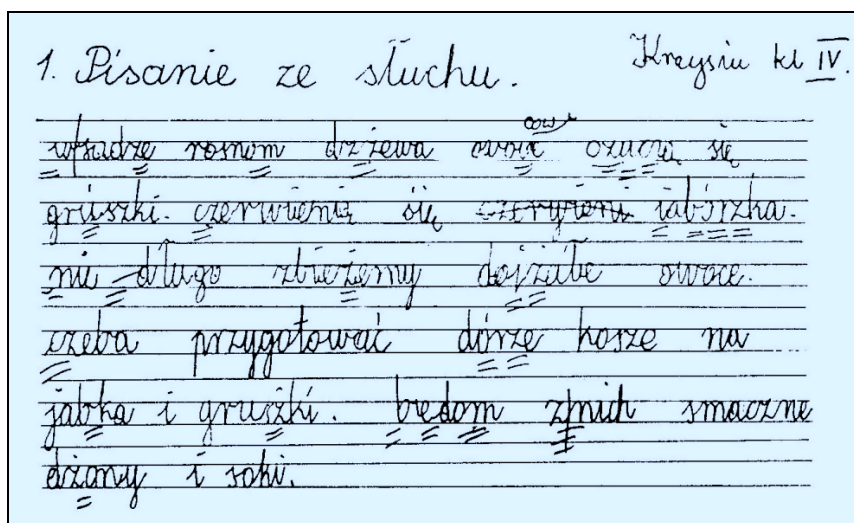 1. Pisanie ze słuchu. Krzysiu kl IV.
wsadze rosnom dżżewa owoce się
gruszki. czerwienią się iabórzka.
nie długo zbieżemy dojżałe owoce.
czeba przygotować dórze kosze na
jabka i gruszki. bredom z nich smaczne
dżomy i soki.